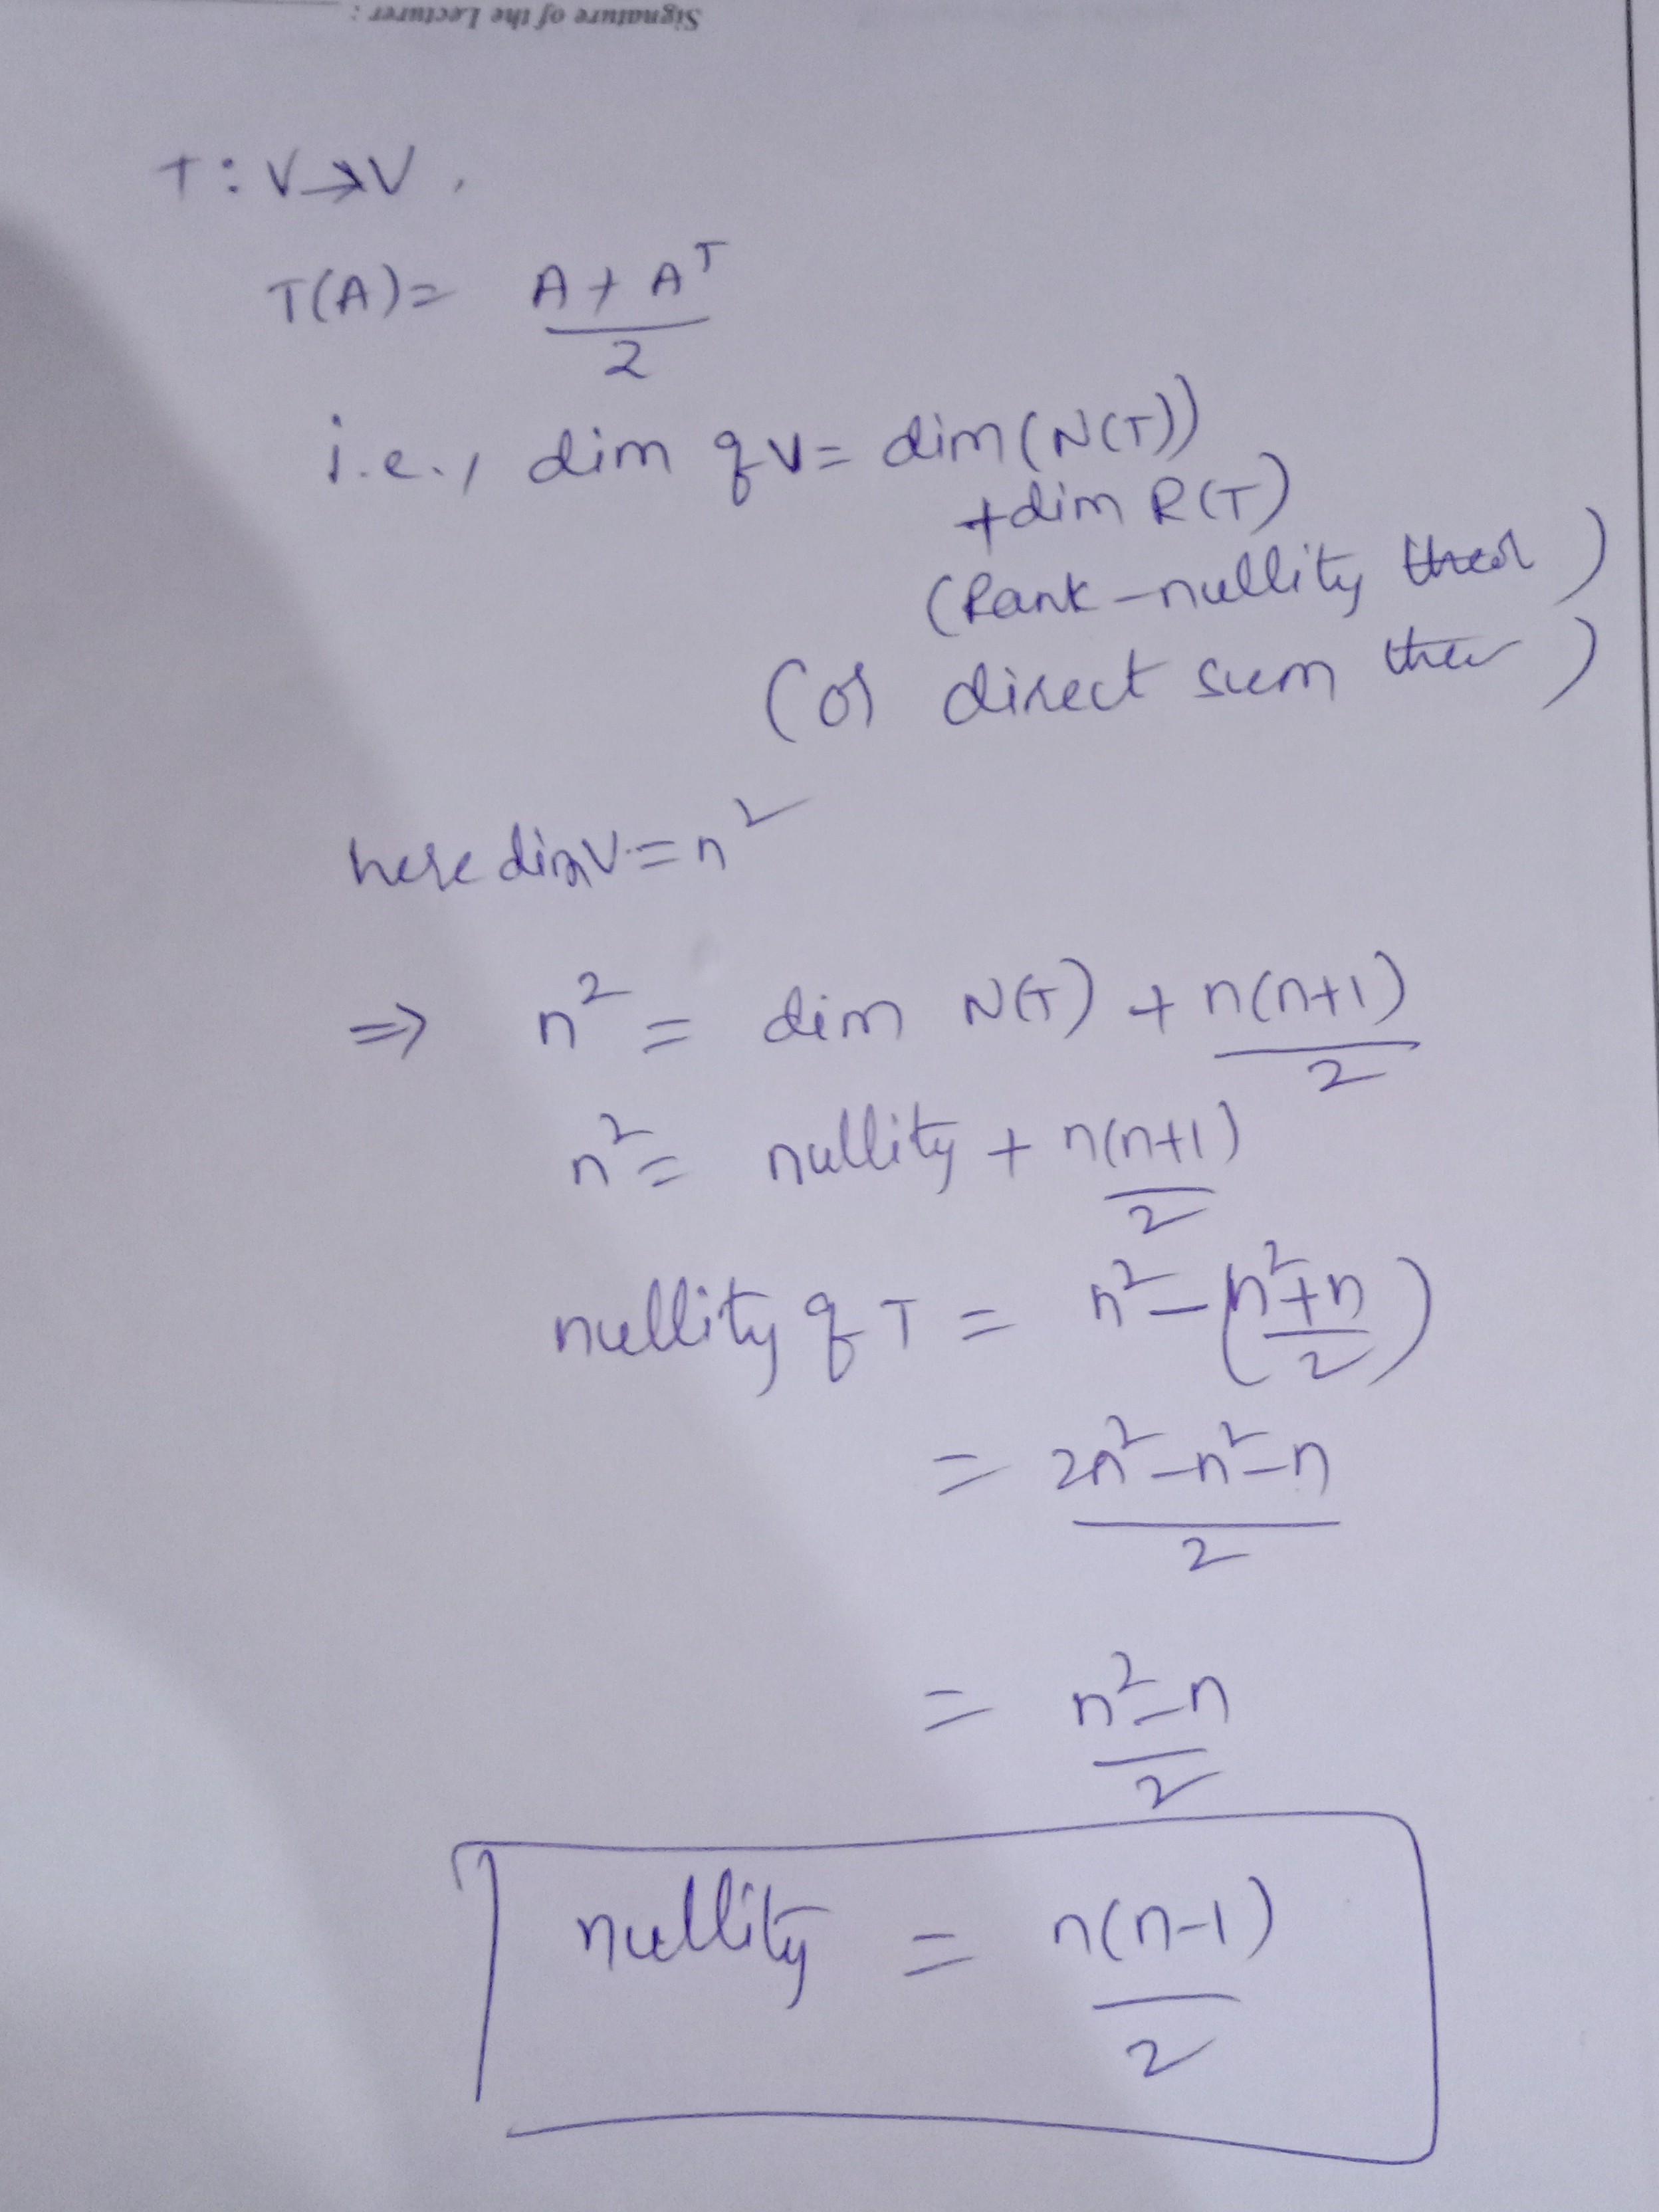 Signature of the Lecturer :
T : V → V ,
T(A) = A + Aᵀ / 2
i.e., dim of V = dim (N(T))
+ dim R(T)
(Rank - nullity theor )
(or direct sum )
here dim V = n²
⇒ n² = dim N(T) + n(n+1) / 2
n² = nullity + n(n+1) / 2
nullity of T = n² - (n²+n / 2)
= 2n² - n² - n / 2
= n² - n / 2
nullity = n(n-1) / 2